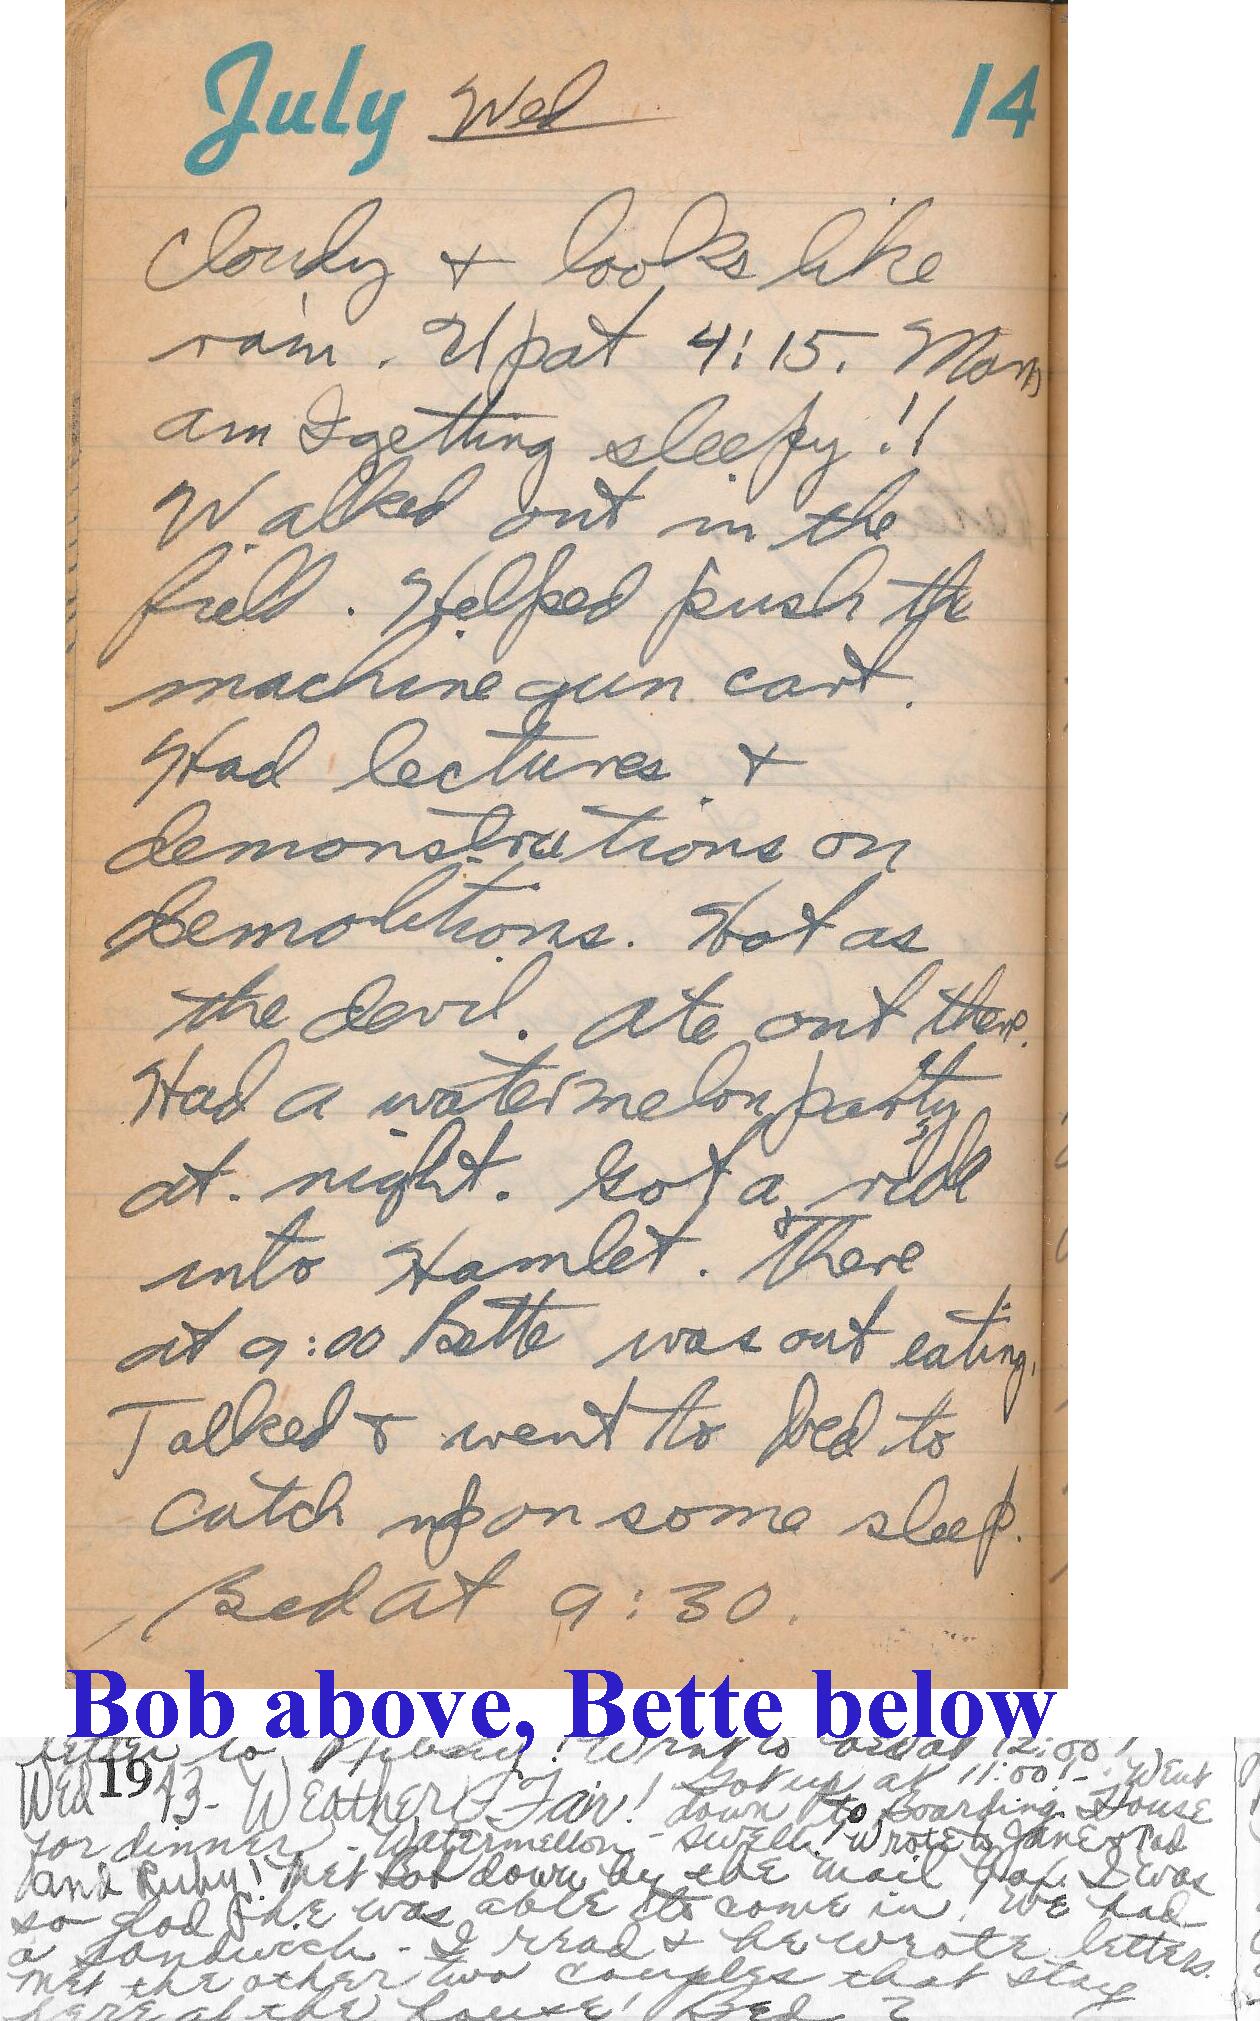 July Wed 14
Cloudy + looks like
rain. Up at 4:15. Man
am I getting sleepy!!
Walked out in the
field. Helped push the
machine gun cart.
Had lectures +
demonstrations on
demolitions. Hot as
the devil. Ate out there.
Had a watermelon party
at night. Got a ride
into Hamlet. There
at 9:00 Bette was out eating.
Talked & went to bed to
catch up on some sleep.
Bed at 9:30.
Bob above, Bette below
letter to ! Went to bed at 12:00!
Wed 1943- Weather Fair! Got up at 11:00!- Went
down to Boarding House
for dinner - Watermellon - swell! Wrote to Jane & Tad
and Ruby! Met Bob down by the mail box. I was
so glad he was able to come in! We had
a sandwich - I read & he wrote letters.
Met the other two couples that stay
here at the house! Bed ?